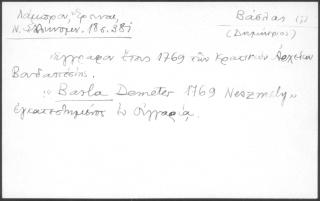 Λάμπρου, Ἔρευναι,
Βάρλας
Ν. Ἑλληνομν. 18ος. 381
(Δημήτριος)
ἔγγραφον ἔτους 1769 τῶν Κρατικῶν Ἀρχείων
Βουδαπέστης.
"Barla Demeter 1769 Neszmely"
ἐγκατεστημένος ἐν Οὑγγαρίᾳ.